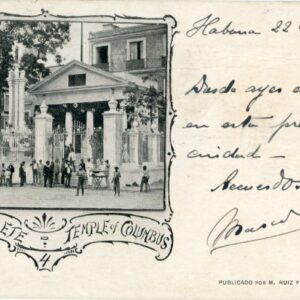 Habana 22
Desde ayer
en esta
ciudad -
Recuerdos
ETE TEMPLE of COLUMBUS
4
PUBLICADO POR M. RUIZ Y